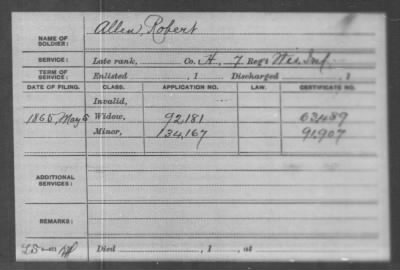 NAME OF SOLDIER: Allen, Robert
SERVICE: Late rank, Co. H, 7 Reg't Wis. Inf.
TERM OF SERVICE: Enlisted , 1 Discharged , 1
DATE OF FILING. CLASS. APPLICATION NO. LAW. CERTIFICATE NO.
Invalid,
1865, May 5 Widow, 92181 63,489
Minor, 134,167 91,907
ADDITIONAL SERVICES:
REMARKS:
Died , 1 , at